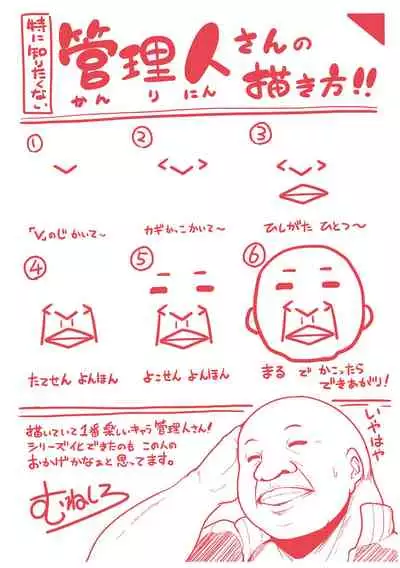 特に知りたくない
管理人さんの
かんりにん
描き方!!
①
②
③
「V」のじかいて〜
カギかっこかいて〜
ひしがた ひとつ〜
④
⑤
⑥
たてせん よんほん
よこせん よんほん
まる で かこったら
できあがり!
描いていて1番楽しいキャラ管理人さん!
シリーズ化できたのも この人の
おかげかなぁと思ってます。
むねしろ
いやはや